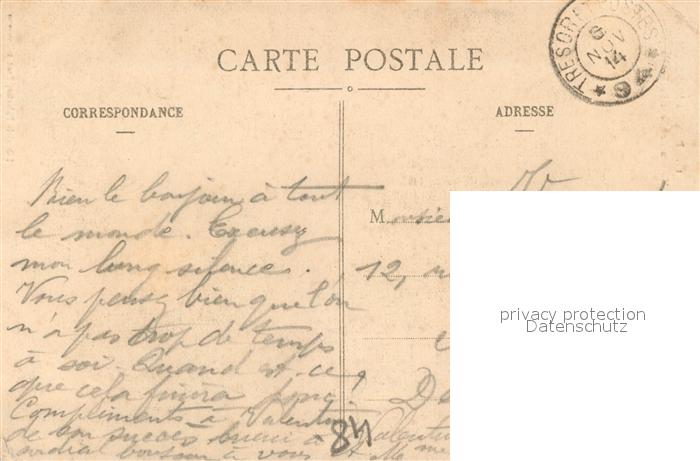 TRESOR ET POSTES
6
NOV
14
* 94 *
CARTE POSTALE
CORRESPONDANCE
ADRESSE
Bien le bonjour à tout
le monde. Excusez
mon long silence.
Vous pensez bien que l'on
n'a pas trop de temps
à soi. Quand est-ce
que cela finira
Compliments à Valentin
de son succès
cordial bonjour à vous
M
12,
84
privacy protection
Datenschutz